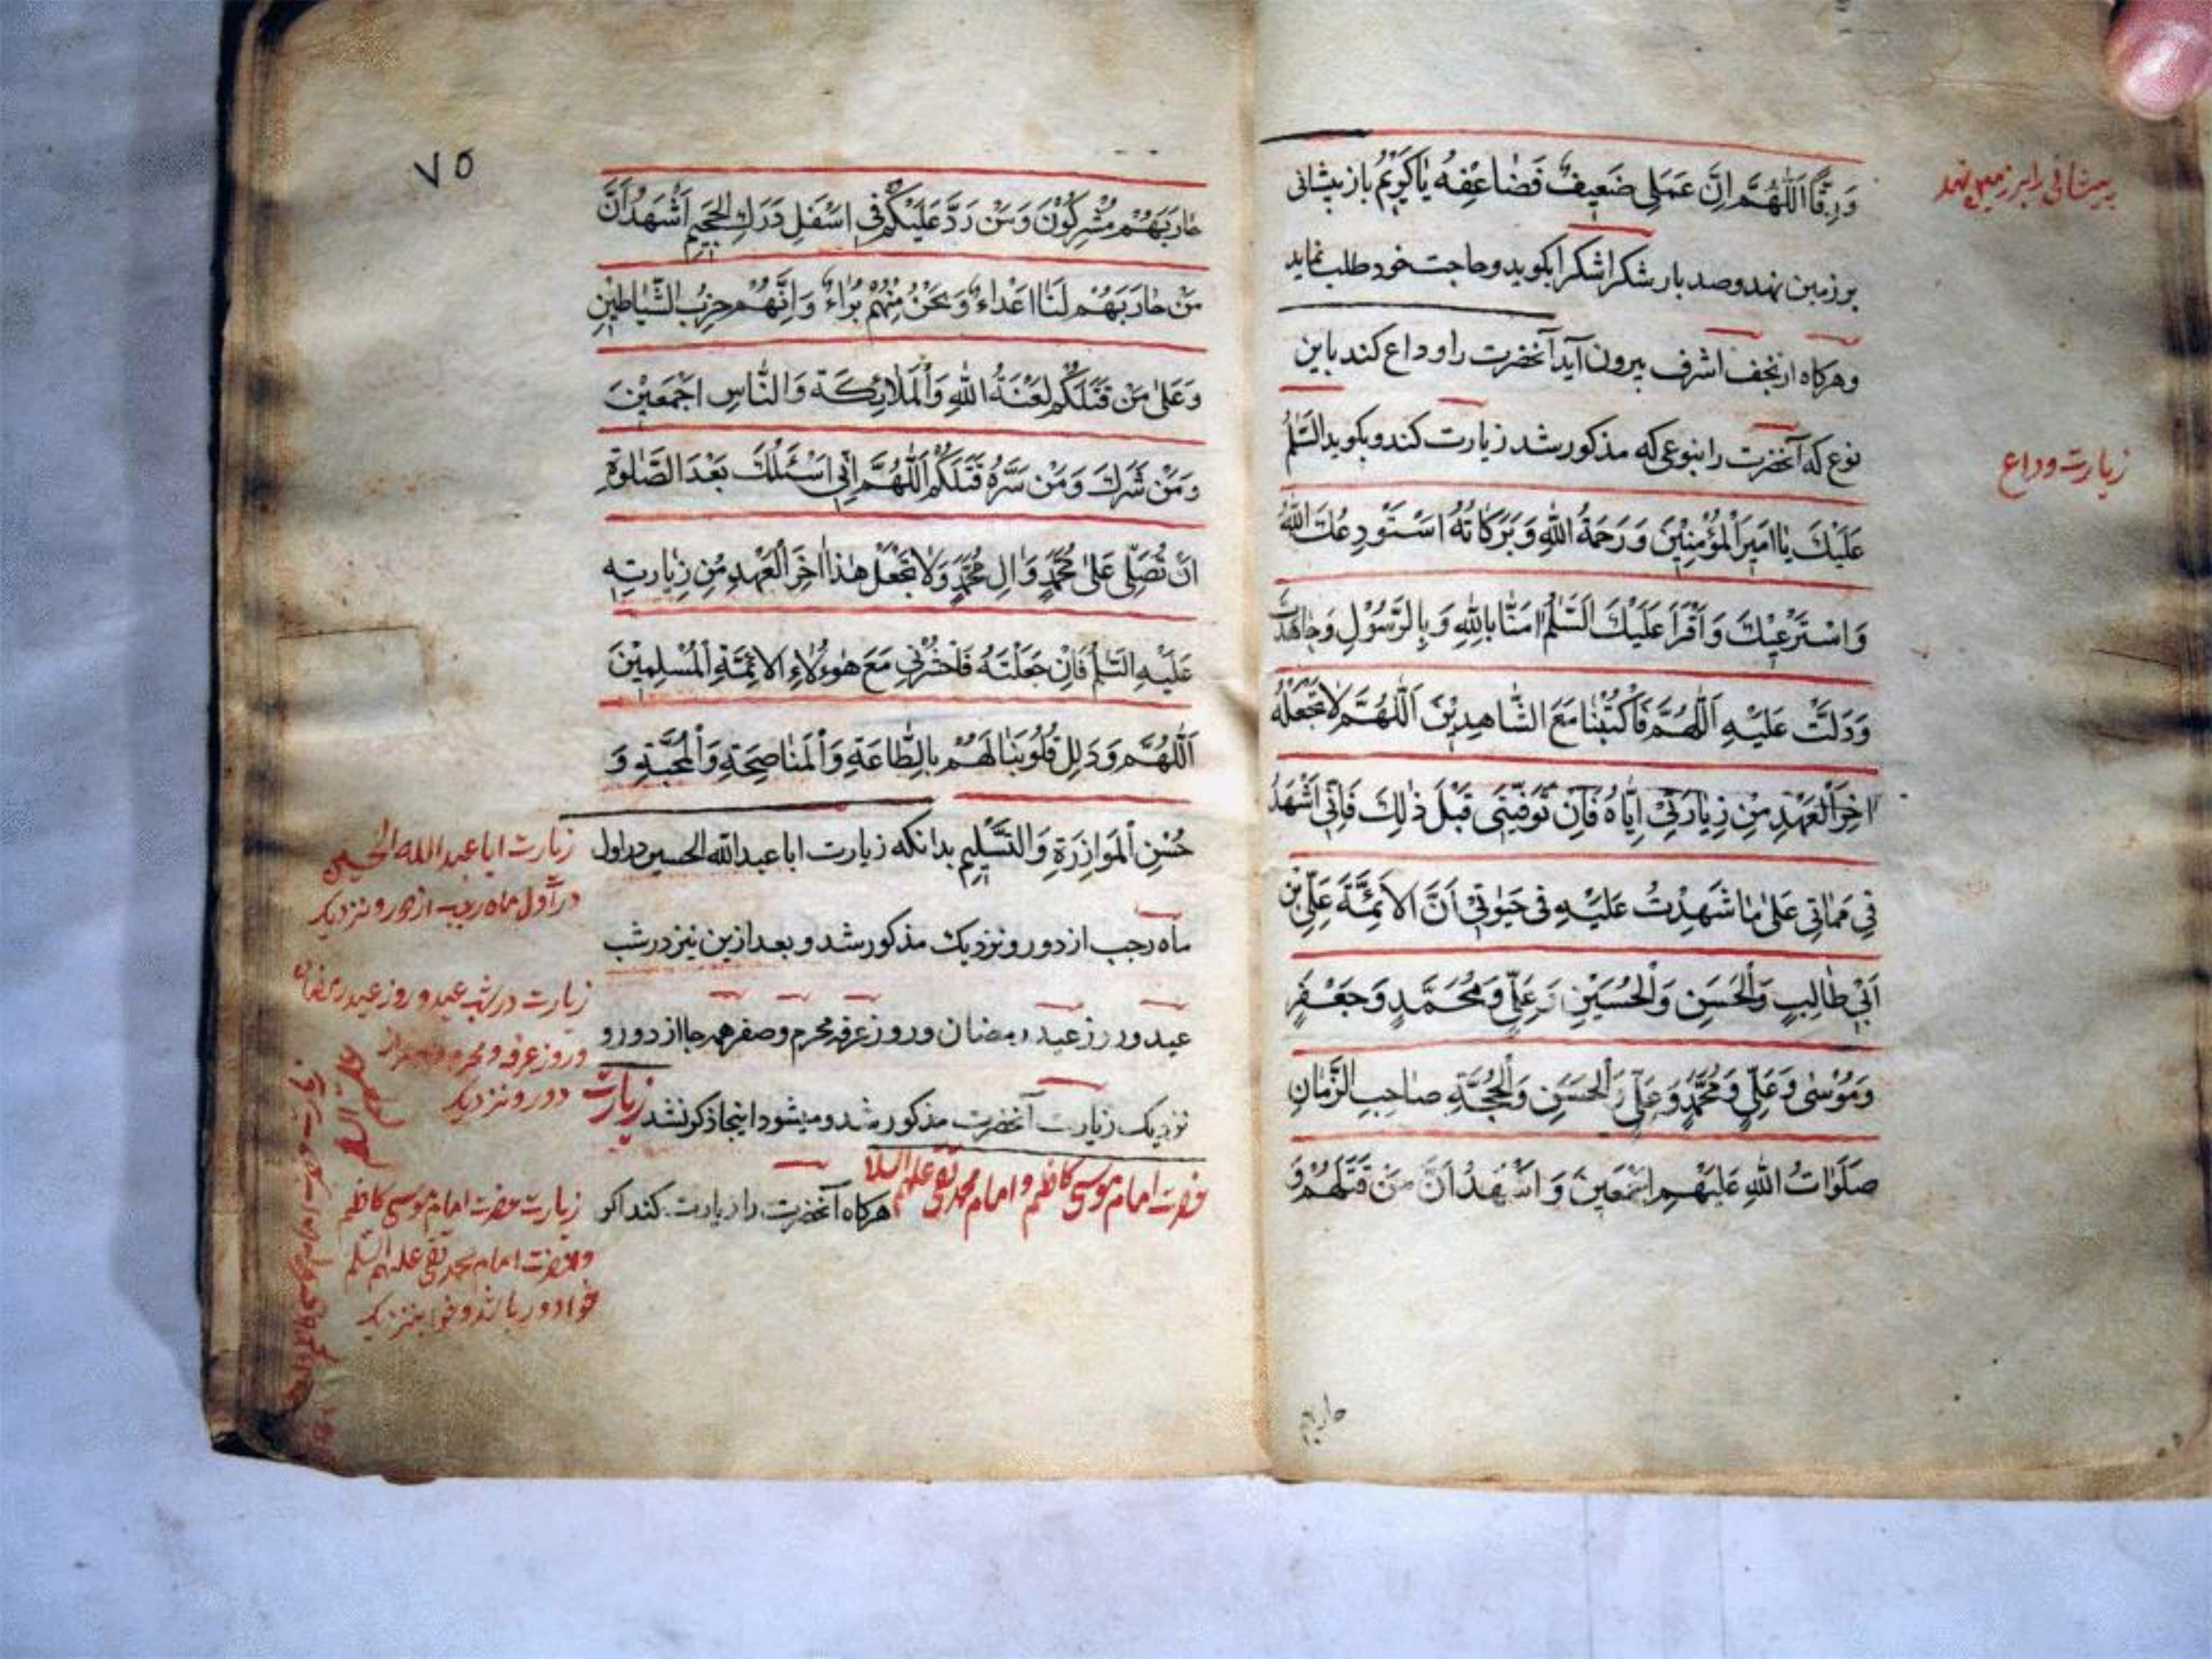 وَرِقًّا اَللّٰهُمَّ اِنَّ عَمَلِى ضَعِيفٌ فَضَاعِفْهُ يَا كَرِيْمُ باز پیشانی
بر زمین نهد و صد بار شکرا شکرا بکوید و حاجت خود طلب نماید
و هرکاه از نجف اشرف بیرون آید آنحضرت را وداع کند باین
نوع که آنحضرت را بنوعی که مذکور شد زیارت کند و بکوید السَّلٰمُ
عَلَيْكَ يَا اَمِيْرَ الْمُؤْمِنِيْنَ وَرَحْمَةُ اللّٰهِ وَبَرَكَاتُهُ اَسْتَوْدِعُكَ اللّٰهَ
وَاَسْتَرْعِيْكَ وَاَقْرَأُ عَلَيْكَ السَّلٰمَ اٰمَنَّا بِاللّٰهِ وَبِالرَّسُوْلِ وَجَاءَتْ
وَدَلَّتْ عَلَيْهِ اَللّٰهُمَّ فَاكْتُبْنَا مَعَ الشَّاهِدِيْنَ اَللّٰهُمَّ لَا تَجْعَلْهُ
اٰخِرَ الْعَهْدِ مِنْ زِيَارَتِىْ اِيَّاهُ فَاِنْ تَوَفَّيْتَنِى قَبْلَ ذٰلِكَ فَاِنِّى اَشْهَدُ
فِى مَمَاتِى عَلٰى مَا شَهِدْتُ عَلَيْهِ فِى حَيٰوتِىْ اَنَّ الْاَئِمَّةَ عَلِىِّ بْنِ
اَبِىْ طَالِبٍ وَالْحَسَنِ وَالْحُسَيْنِ وَعَلِىٍّ وَمُحَمَّدٍ وَجَعْفَرٍ
وَمُوْسٰى وَعَلِىٍّ وَمُحَمَّدٍ وَعَلِىٍّ وَالْحَسَنِ وَالْحُجَّةِ صَاحِبِ الزَّمَانِ
صَلَوَاتُ اللّٰهِ عَلَيْهِمْ اَجْمَعِيْنَ وَاَشْهَدُ اَنَّ مَنْ قَتَلَهُمْ وَ
پیشانی را بر زمین نهد
زیارت وداع
حاربهم
۷۵
حَارَبَهُمْ مُشْرِكُوْنَ وَمَنْ رَدَّ عَلَيْكُمْ فِى اَسْفَلِ دَرَكِ الْجَحِيْمِ اَشْهَدُ اَنَّ
مَنْ حَارَبَهُمْ لَنَا اَعْدَاءٌ وَنَحْنُ مِنْهُمْ بُرَاءٌ وَاِنَّهُمْ حِزْبُ الشَّيَاطِيْنِ
وَعَلٰى مَنْ قَتَلَكُمْ لَعْنَةُ اللّٰهِ وَالْمَلَائِكَةِ وَالنَّاسِ اَجْمَعِيْنَ
وَمَنْ شَرَكَ وَمَنْ سَرَّهُ قَتْلَكُمْ اَللّٰهُمَّ اِنِّى اَسْئَلُكَ بَعْدَ الصَّلٰوةِ
اَنْ تُصَلِّىَ عَلٰى مُحَمَّدٍ وَاٰلِ مُحَمَّدٍ وَلَا تَجْعَلْ هٰذَا اٰخِرَ الْعَهْدِ مِنْ زِيَارَتِهِ
عَلَيْهِ السَّلٰمُ فَاِنْ جَعَلْتَهُ فَاحْشُرْنِى مَعَ هٰؤُلَاءِ الْاَئِمَّةِ الْمُسْلِمِيْنَ
اَللّٰهُمَّ وَذَلِّلْ قُلُوْبَنَا لَهُمْ بِالطَّاعَةِ وَالْمُنَاصِحَةِ وَالْمُحَبَّةِ وَ
حُسْنِ الْمَوَازِرَةِ وَالتَّسْلِيْمِ بدانکه زیارت اباعبدالله الحسین در اول
ماه رجب از دور و نزدیک مذکور شد و بعد ازین نیز در شب
عید و روز عید رمضان و روز عرفه محرم و صفر همه جا از دور و
نزدیک زیارت آنحضرت مذکور شد و میشود اینجا ذکر نشد زیارت
حضرت امام موسی کاظم و امام محمد تقی علیهم السلام هرکاه آنحضرت را زیارت کند اکر
زیارت اباعبدالله الحسین
در اول ماه رجب از دور و نزدیک
زیارت در شب عید و روز عید رمضان
و روز عرفه و محرم و صفر از
دور و نزدیک
زیارت حضرت امام موسی کاظم
و حضرت امام محمد تقی علیهم السلم
خواه دور باشد و خواه نزدیک